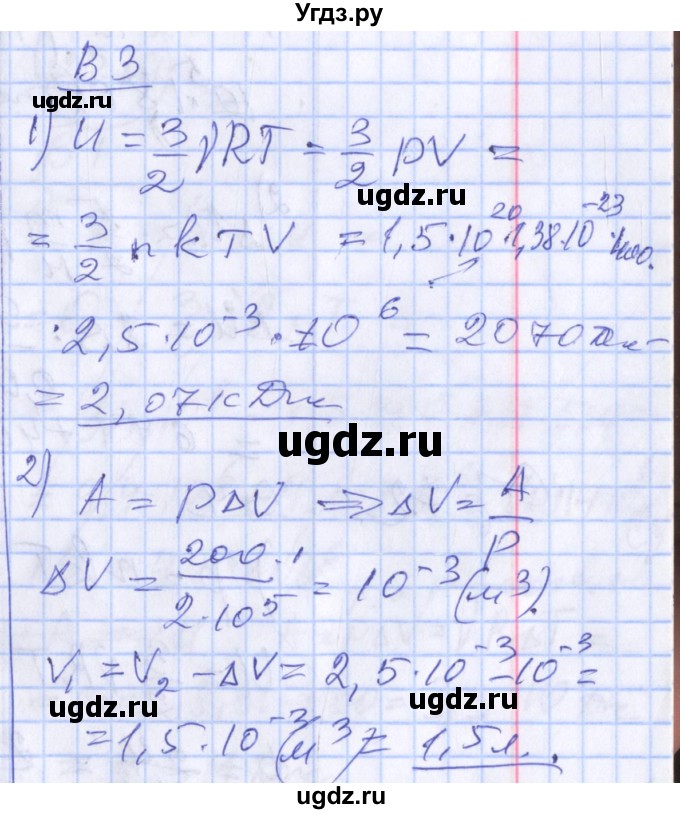 Угдз.ру
В 3
ugdz.ru
1) U = 3/2 νRT = 3/2 pV =
ugdz.ru
= 3/2 n k T V = 1,5·10^20·1,38·10^-23·400·
·2,5·10^-3·10^6 = 2070 Дж =
= 2,07 кДж
ugdz.ru
2) A = pΔV => ΔV = A/p
ΔV = 200·1/2·10^5 = 10^-3 (м^3).
V₁ = V₂ - ΔV = 2,5·10^-3 - 10^-3 =
ugdz.ru
ugdz.ru
= 1,5·10^-3 (м^3) = 1,5 л.
ugdz.ru